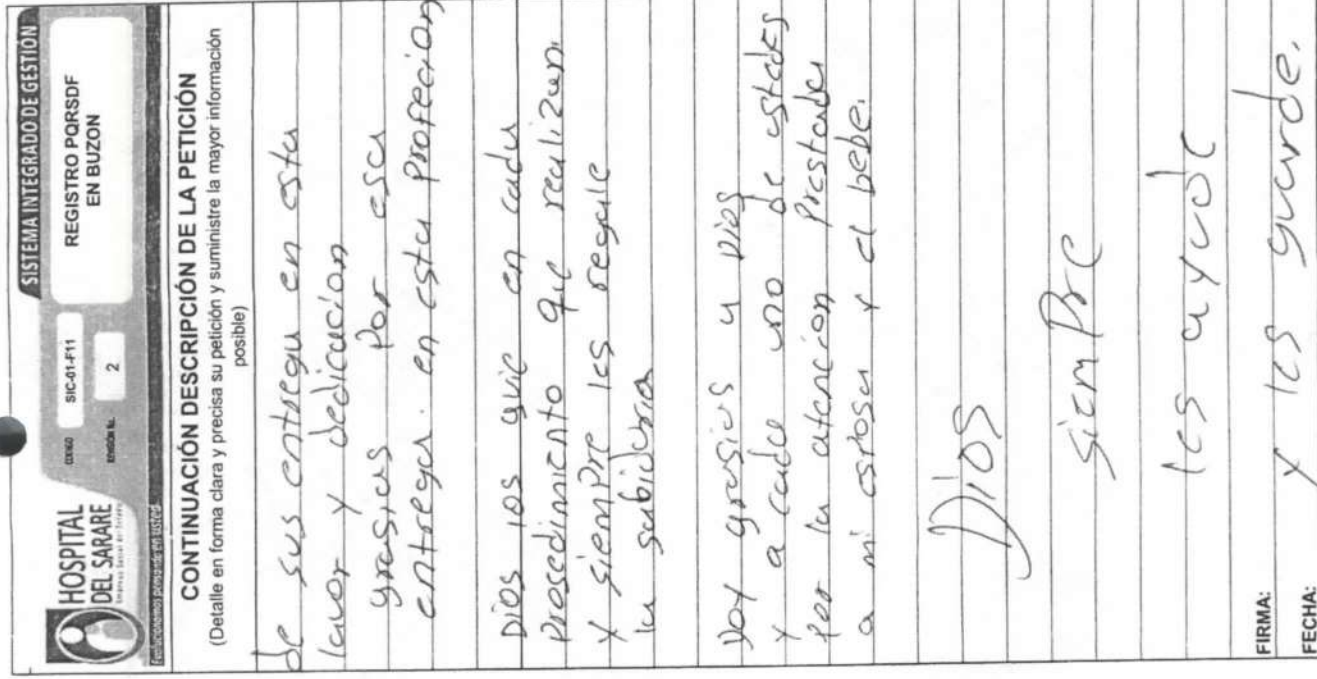 SISTEMA INTEGRADO DE GESTIÓN
HOSPITAL
DEL SARARE
Empresa Social del Estado
CODIGO
SIC-01-F11
REGISTRO PQRSDF
EN BUZON
2
Evolucionamos pensando en usted
CONTINUACIÓN DESCRIPCIÓN DE LA PETICIÓN
(Detalle en forma clara y precisa su petición y suministre la mayor información
posible)
de sus entrega en esta
lavor y dedicacion
grasias Por esa
entrega. en esta profecion
Dios los guie en cada
Prosedimiento que realizan.
y siempre les regale
la sabiduria
Doy grasias a Dios
y a cada uno de ustedes
por la atencion Prestada
a mi esposa y el bebe.
Dios
siempre
les ayude
y les guarde.
FIRMA:
FECHA: